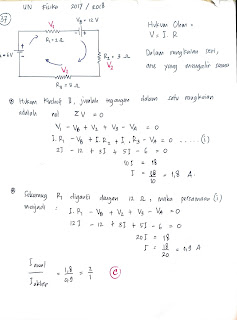 UN Fisika 2017/2018
37
V₁
VB = 12 V
R₁ = 2 Ω
VA = 6V
R₂ = 3 Ω
V₂
V₃
R₃ = 5 Ω
Hukum Ohm =
V = I . R
Dalam rangkaian seri,
arus yang mengalir sama
Hukum Kirchoff II, jumlah tegangan dalam satu rangkaian
adalah nol ΣV = 0
V₁ - VB + V₂ + V₃ - VA = 0
I.R₁ - VB + I.R₂ + I.R₃ - VA = 0 .....(i)
2I - 12 + 3I + 5I - 6 = 0
10I = 18
I = 18/10 = 1,8 A.
Sekarang R₁ diganti dengan 12 Ω, maka persamaan (i)
menjadi : I.R₁ - VB + V₂ + V₃ - VA = 0
12I - 12 + 3I + 5I - 6 = 0
20I = 18
I = 18/20 = 0,9 A
I awal / I akhir = 1,8/0,9 = 2/1 C